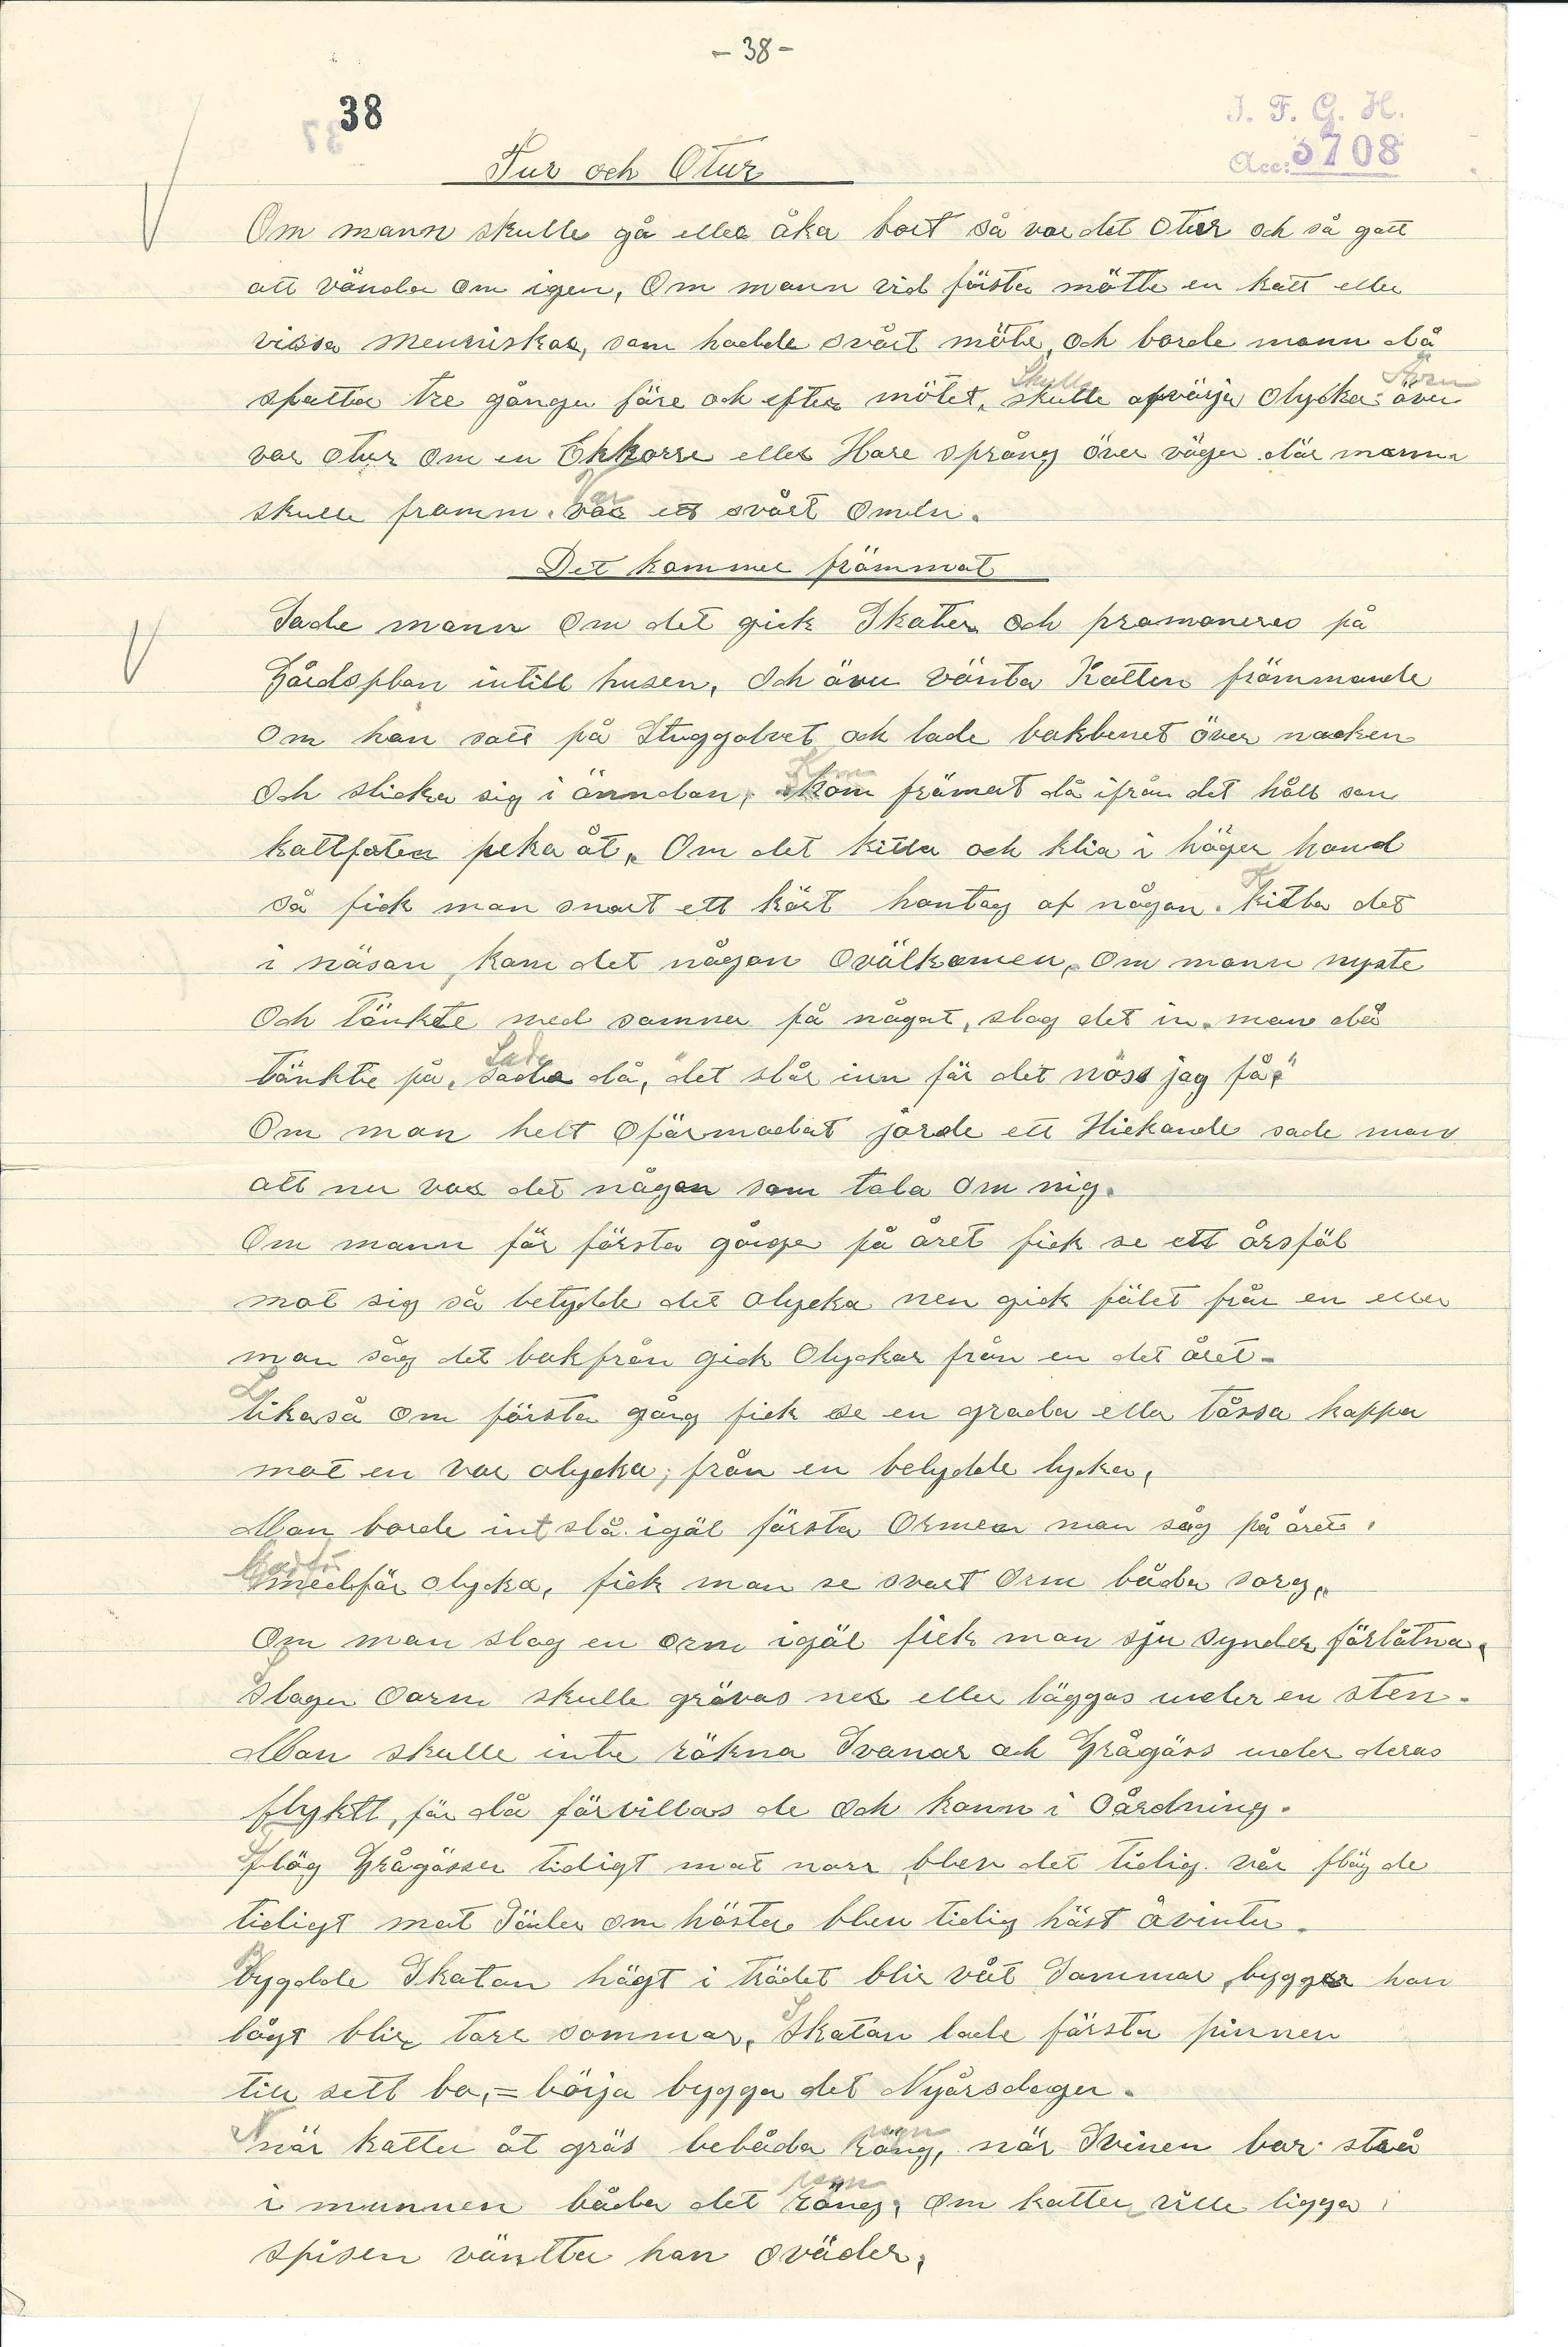 - 38 -
38
I. F. G. H.
Acc: 3708
Tur och Otur
Om mann skulle gå eller åka bort så var det Otur och så gott
att vända om igen, Om mann vid första mötte en katt eller
vissa menniskor, som hadde svårt möte, och borde mann då
spotta tre gånger före och efter mötet, skulle avvärja Olycka. även
var otur om en Ekkorre eller Hare språng över vägen där mann
skulle framm. var ett svårt Omeln.
Det kommer främmat
Sade mann Om det gick Skater och promoneres på
Gårdsplan intill husen, Och även vänta Katten främmande
Om han satt på Stuggolvet och lade bakbenet över nacken
Och slicka sig i änndan, kom främat då ifrån det håll som
kattfoten peka åt, Om det kittla och klia i höger hand
så fick man snart ett kärt hantag af någon. Kittla det
i näsan, kom det någon Ovälkomen, Om mann nyste
Och tänkte med samma på något, slog det in. man då
tänkte på, sade då, "det slår inn för det nöss jag på,"
Om man helt Oförmodat jorde ett Hickande sade man
att nu var det någon som tala om mig.
Om mann för första gånge på året fick se ett årsföl
mot sig så betydde det olycka men gick fölet från en eller
man såg det bakfrån gick Olyckor från en det året-
Likaså om första gång fick se en groda eller tåssa hoppa
mot en var olycka, från en betydde lycka,
Man borde int slå igäl första Ormen man såg på året,
medför olycka, fick man se svart Orm båda sorg,
Om man slog en orm igäl fick man sju synder förlåtna,
Slagen Oorm skulle grävas ner eller läggas under en sten.
Man skulle inte räkna Svanar och Grågäss under deras
flyktt, för då förvillas de och komm i Oårdning.
flög Grågässer tidigt mot norr blev det tidig vår flög de
tidigt mot Söder om hösten blev tidig höst å vinter.
bygdde Skatan högt i trädet blir våt Sommar, bygger han
lågt blir torr sommar, Skatan lade första pinnen
till sett bo, = börja bygga det Nyårsdagen.
när katten åt gräs bebåda räng, när Svinen bar strå
i munnen båda det räng, Om katten ville ligga i
spisen väntta han oväder,